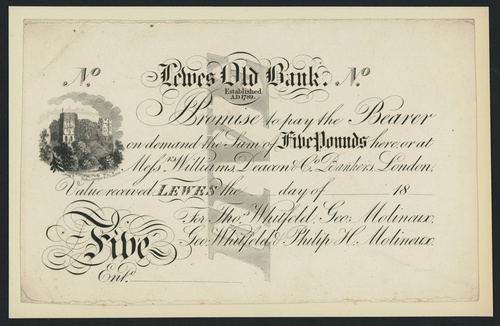 No Lewes Old Bank. No
Established
A.D 1789.
I Promise to pay the Bearer
on demand the Sum of Five Pounds here, or at
Messrs Williams, Deacon & Co. Bankers, London.
Value received, LEWES the day of 18
For Thos. Whitfeld, Geo: Molineux,
Geo: Whitfeld & Philip H. Molineux.
Five
Entd.
FIVE